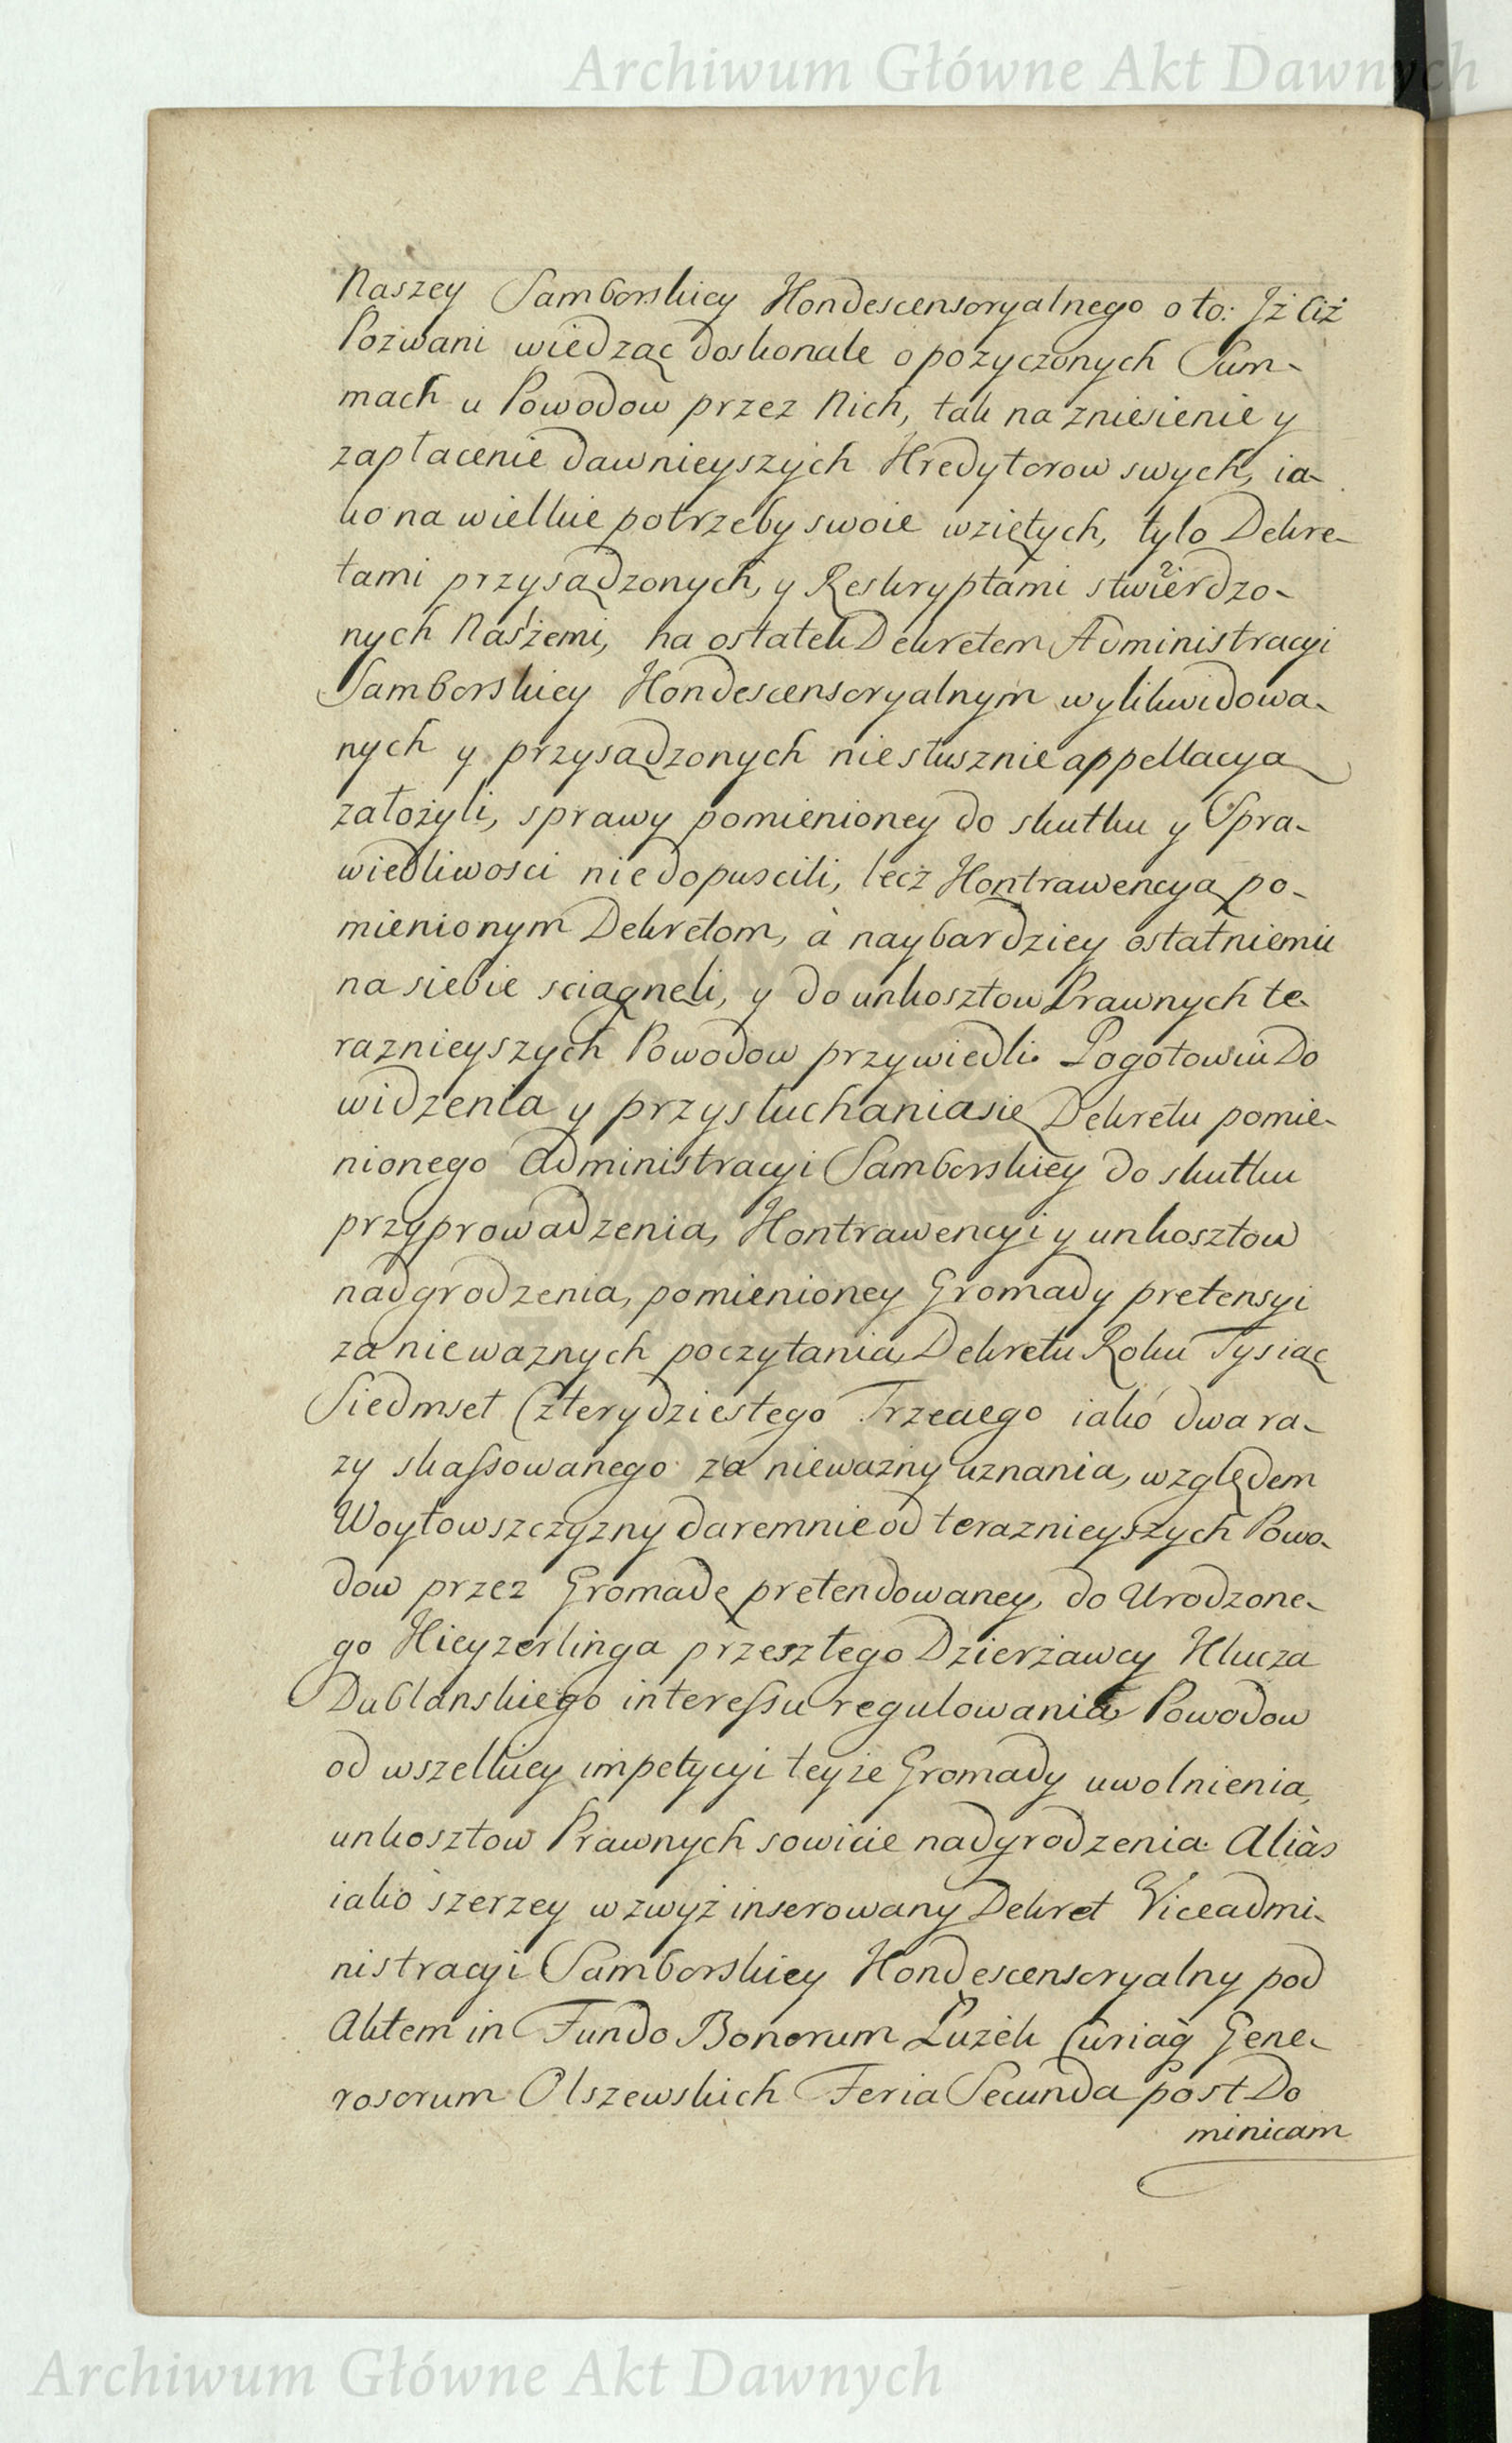 Archiwum Główne Akt Dawnych
Naszey Samborskiey Kondescensoryalnego o to: Jż Ciż
Pozwani wiedząc doskonale o pozyczonych Sum-
mach u Powodow przez Nich, tak na zniesienie y
zapłacenie dawnieyszych Kredytorow swych, ia-
ko na wielkie potrzeby swoie wziętych, tylo Dekre-
tami przysądzonych, y Reskryptami stwierdzo-
nych Naszemi, na ostatek Dekretem Administracyi
Samborskiey Kondescensoryalnym wylikwidowa-
nych y przysądzonych niesłusznie appellacyą
założyli, sprawy pomienioney do skutku y Spra-
wiedliwosci niedopuscili, lecz Kontrawencyą po-
mienionym Dekretom, à naybardziey ostatniemu
na siebie sciągneli, y do unkosztow Prawnych te-
raznieyszych Powodow przywiedli. Pogotowiu Do
widzenia y przysłuchania się Dekretu pomie-
nionego Administracyi Samborskiey do skutku
przyprowadzenia, Kontrawencyi y unkosztow
nadgrodzenia, pomienioney Gromady pretensyi
za niewaznych poczytania, Dekretu Roku Tysiąc
Siedmset Czterydziestego Trzeciego iako dwa ra-
zy skassowanego za niewazny uznania, względem
Woytowszczyzny daremnie od teraznieyszych Powo-
dow przez Gromadę pretendowaney, do Urodzone-
go Kieyzerlinga przeszłego Dzierżawcy Klucza
Dublanskiego interessu regulowania, Powodow
od wszelkiey impetycyi teyze Gromady uwolnienia,
unkosztow Prawnych sowicie nadgrodzenia. Aliàs
iako szerzey wzwyż inserowany Dekret Viceadmi-
nistracyi Samborskiey Kondescensoryalny pod
Aktem in Fundo Bonorum Łużek Curiaq̃ Gene-
rosorum Olszewskich Feria Secunda post Do
minicam
Archiwum Główne Akt Dawnych